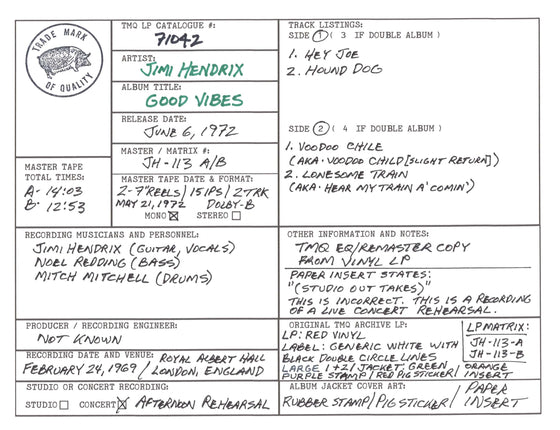 TRADE MARK
OF QUALITY
TMQ LP CATALOGUE #:
71042
ARTIST:
JIMI HENDRIX
ALBUM TITLE:
GOOD VIBES
RELEASE DATE:
JUNE 6, 1972
MASTER / MATRIX #:
JH-113 A/B
MASTER TAPE
TOTAL TIMES:
A- 14:03
B- 12:53
MASTER TAPE DATE & FORMAT:
2-7"REELS/15IPS/2-TRK
MAY 21, 1972 DOLBY-B
MONO ☒ STEREO ☐
TRACK LISTINGS:
SIDE ① ( 3 IF DOUBLE ALBUM )
1. HEY JOE
2. HOUND DOG
SIDE ② ( 4 IF DOUBLE ALBUM )
1. VOODOO CHILE
(AKA· VOODOO CHILD [SLIGHT RETURN])
2. LONESOME TRAIN
(AKA· HEAR MY TRAIN A' COMIN')
RECORDING MUSICIANS AND PERSONNEL:
JIMI HENDRIX (GUITAR, VOCALS)
NOEL REDDING (BASS)
MITCH MITCHELL (DRUMS)
OTHER INFORMATION AND NOTES:
TMQ EQ/REMASTER COPY
FROM VINYL LP
PAPER INSERT STATES:
"(STUDIO OUT TAKES)"
THIS IS INCORRECT. THIS IS A RECORDING
OF A LIVE CONCERT REHEARSAL.
PRODUCER / RECORDING ENGINEER:
NOT KNOWN
RECORDING DATE AND VENUE:
FEBRUARY 24, 1969 / ROYAL ALBERT HALL
LONDON, ENGLAND
STUDIO OR CONCERT RECORDING:
STUDIO ☐ CONCERT ☒ AFTERNOON REHEARSAL
ORIGINAL TMQ ARCHIVE LP:
LP: RED VINYL
LABEL: GENERIC WHITE WITH
BLACK DOUBLE CIRCLE LINES
LARGE 1+2/JACKET: GREEN
PURPLE STAMP/RED PIG STICKER/
ORANGE
INSERT
LP MATRIX:
JH-113-A
JH-113-B
ALBUM JACKET COVER ART:
RUBBER STAMP/PIG STICKER/
PAPER
INSERT